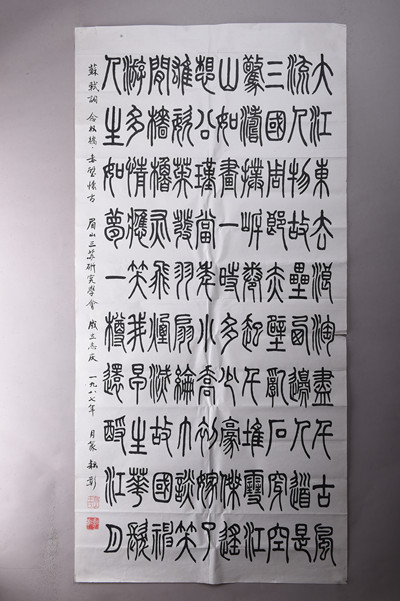 大江東去浪淘盡千古風
流人物故壘西邊人道是
三國周郎赤壁亂石穿空
驚濤撲岸捲起千堆雪江
山如畫一時多少豪傑遙
想公瑾當年小喬初嫁了
雄姿英發羽扇綸巾談笑
間檣櫓灰飛煙滅故國神
游多情應笑我早生華髮
人生如夢一樽還酹江月
蘇軾詞 念奴嬌·赤壁懷古 眉山三蘇研究學會 成立志慶 一九八七年